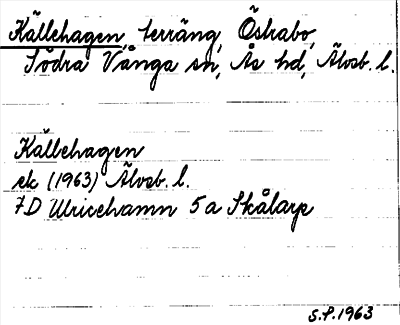 Källehagen, terräng, Östrabo,
Södra Vånga sn, Ås hd, Älvsb. l.
Källehagen
ek (1963) Älvsb. l.
7D Ulricehamn 5a Skålarp
S.P. 1963